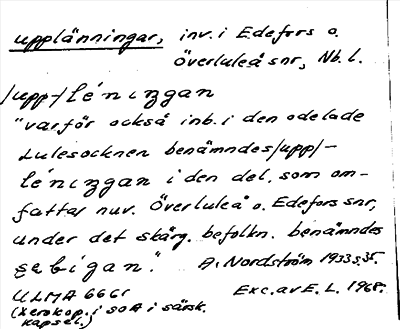 upplänningar, inv. i Edefors o.
Överluleå snr, Nb. l.
/upp-/lénıngan
"varför också inb. i den odelade
Lulesocknen benämndes /upp/-
lénıngan i den del, som om-
fattar nuv. Överluleå o. Edefors snr,
under det skärg. befolkn. benämndes
şebigan." A. Nordström 1933 s. 35.
ULMA 6661 Exc. av E. L. 1968.
(Xerokop. i SOA i särsk.
kapsel.)